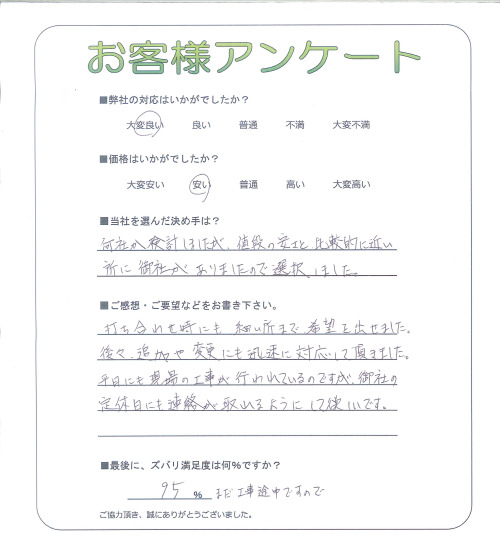 お客様アンケート
■弊社の対応はいかがでしたか？
大変良い 良い 普通 不満 大変不満
■価格はいかがでしたか？
大変安い 安い 普通 高い 大変高い
■当社を選んだ決め手は？
何社か検討しましたが、値段の安さと比較的に近い
所に御社がありましたので選択しました。
■ご感想・ご要望などをお書き下さい。
打ち合わせ時にも細い所まで希望を出せました。
後々、追加や変更にも迅速に対応して頂きました。
平日にも現場の工事が行われているのですが、御社の
定休日にも連絡が取れるようにして欲しいです。
■最後に、ズバリ満足度は何%ですか？
95 % まだ工事途中ですので
ご協力頂き、誠にありがとうございました。